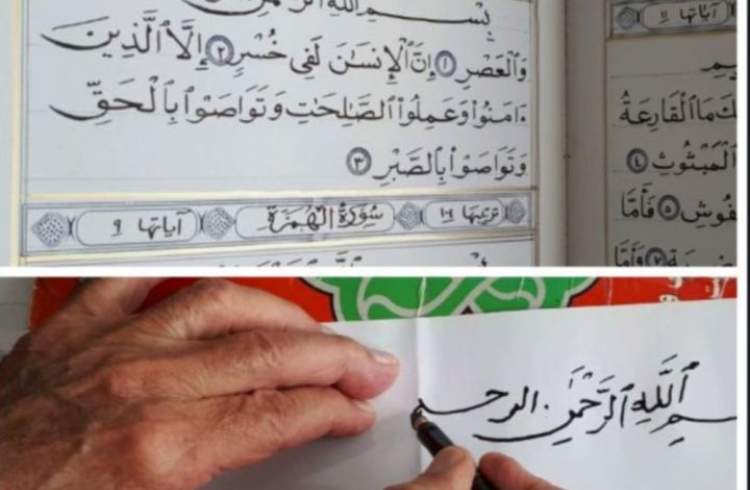 بِسْمِ اللَّهِ الرَّحْمَٰنِ
وَٱلْعَصْرِ ۝١ إِنَّ ٱلْإِنسَٰنَ لَفِى خُسْرٍ ۝٢ إِلَّا ٱلَّذِينَ
ءَامَنُوا۟ وَعَمِلُوا۟ ٱلصَّٰلِحَٰتِ وَتَوَاصَوْا۟ بِٱلْحَقِّ
وَتَوَاصَوْا۟ بِٱلصَّبْرِ ۝٣
ترتيبها ١٠٤ سُورَةُ الْهُمَزَةِ آياتها ٩
آياتها ١١
مَا ٱلْقَارِعَةُ
ٱلْمَبْثُوثِ ۝٤
فَأَمَّا
وَأَمَّا
ٱللَّهِ ٱلرَّحْمَٰنِ الرحـ